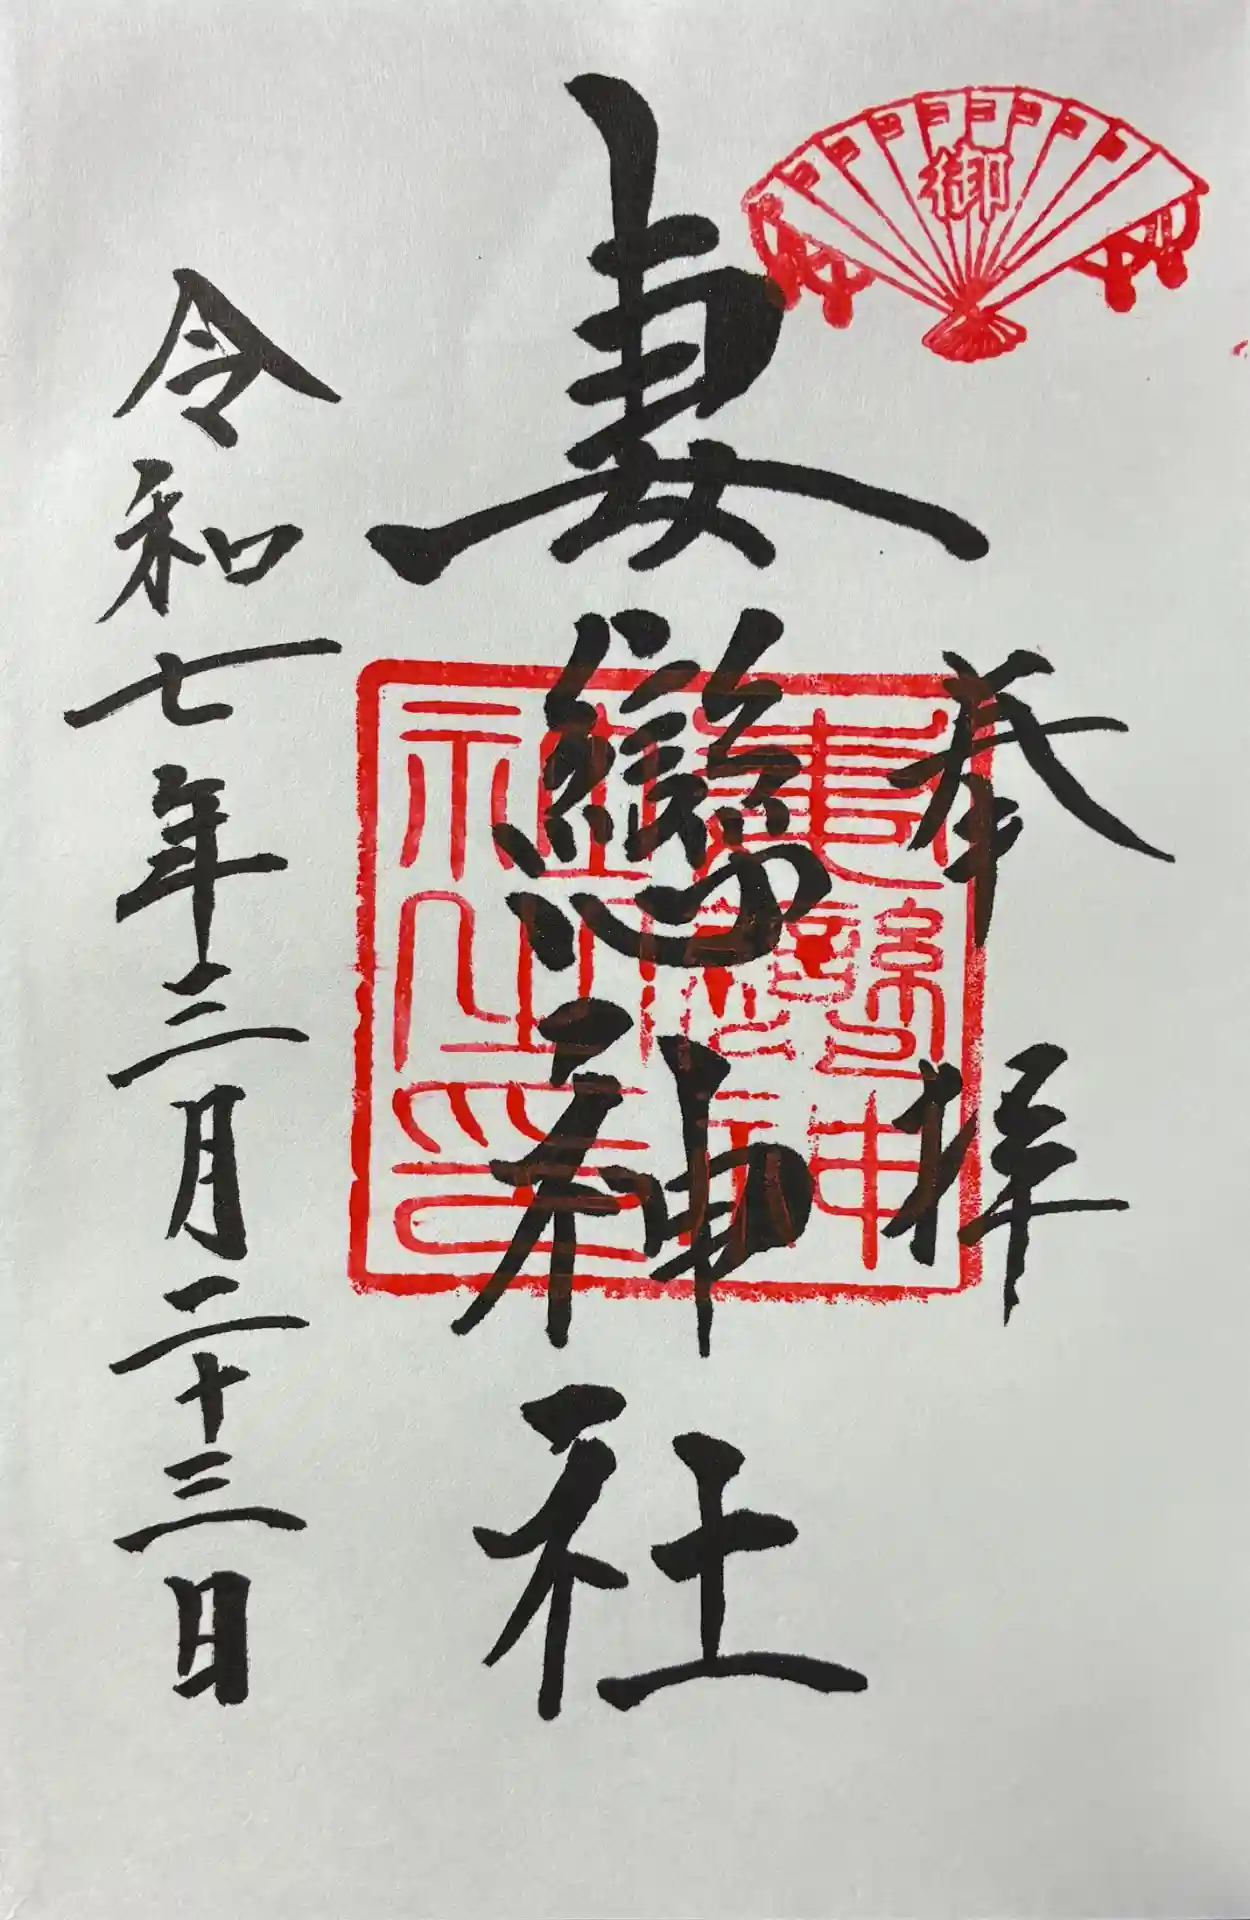 御
奉拝
妻戀神社
妻戀神社之印
令和七年三月二十三日